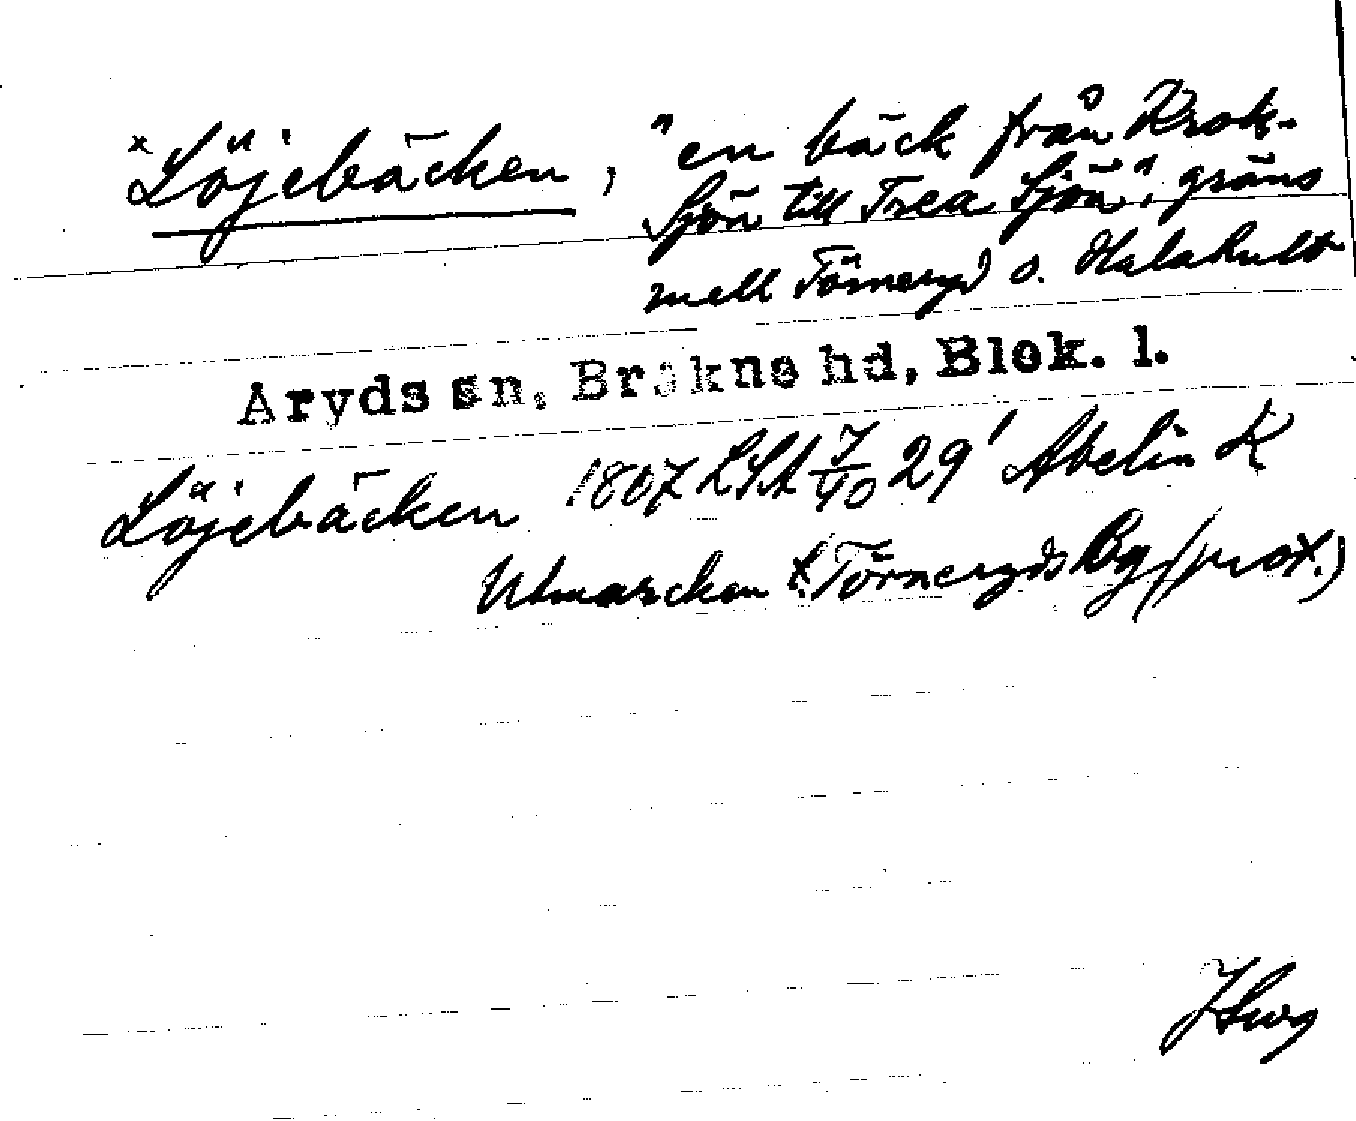 *Löjebäcken, "en bäck från Krok-
Sjön till Trea Sjön", gräns
mell Törneryd o. Halahult
Aryds sn, Bräkne hd, Blek. l.
Löjebäcken 1807 LSA 29' Abelin K
Utmarcken t. Törneryds By (prot.)